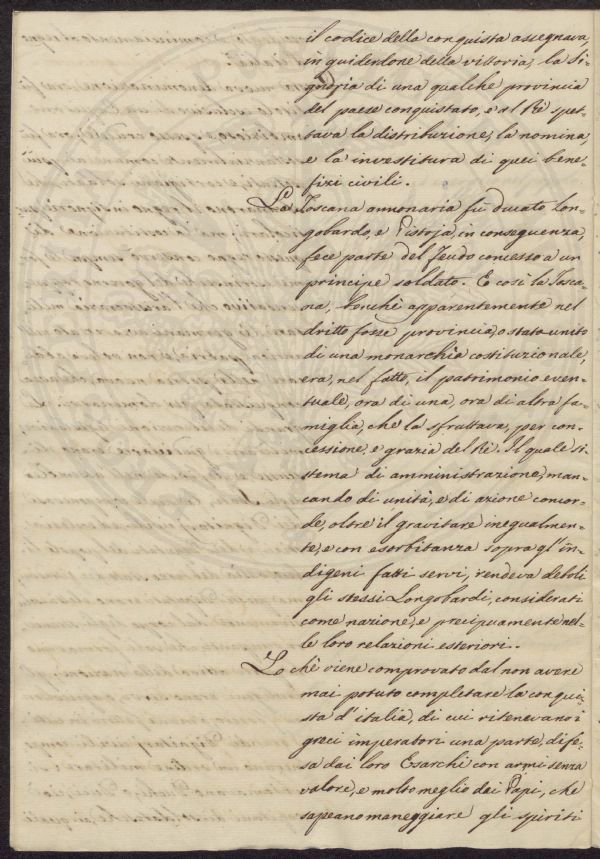 il codice della conquista assegnava,
in guiderdone della vittoria, la Si-
gnoria di una qualche provincia
del paese conquistato, e al Rè spet-
tava la distribuzione, la nomina,
e la investitura di quei bene-
fizi civili.
La Toscana annonaria fù ducato Lon-
gobardo, e Pistoja, in conseguenza,
fece parte del Feudo concesso a un
principe soldato. E così la Tosca-
na, benchè apparentemente nel
dritto fosse provincia, o stato unito
di una monarchia costituzionale,
era, nel fatto, il patrimonio even-
tuale, ora di una, ora di altra fa-
miglia, che la sfruttava, per con-
cessione, e grazia del Rè. Il quale si-
stema di amministrazione, man-
cando di unità, e di azione concor-
de, oltre il gravitare inegualmen-
te, e con esorbitanza sopra gl'in-
digeni fatti servi, rendeva deboli
gli stessi Longobardi, considerati
come nazione, e precipuamente nel-
le loro relazioni esteriori.
Lo chè viene comprovato dal non avere
mai potuto completare la conqui-
sta d'italia, di cui ritenevano i
greci imperatori una parte, dife-
sa dai loro Esarchi con armi senza
valore, e molto meglio dei Papi, che
sapeano maneggiare gli spiriti